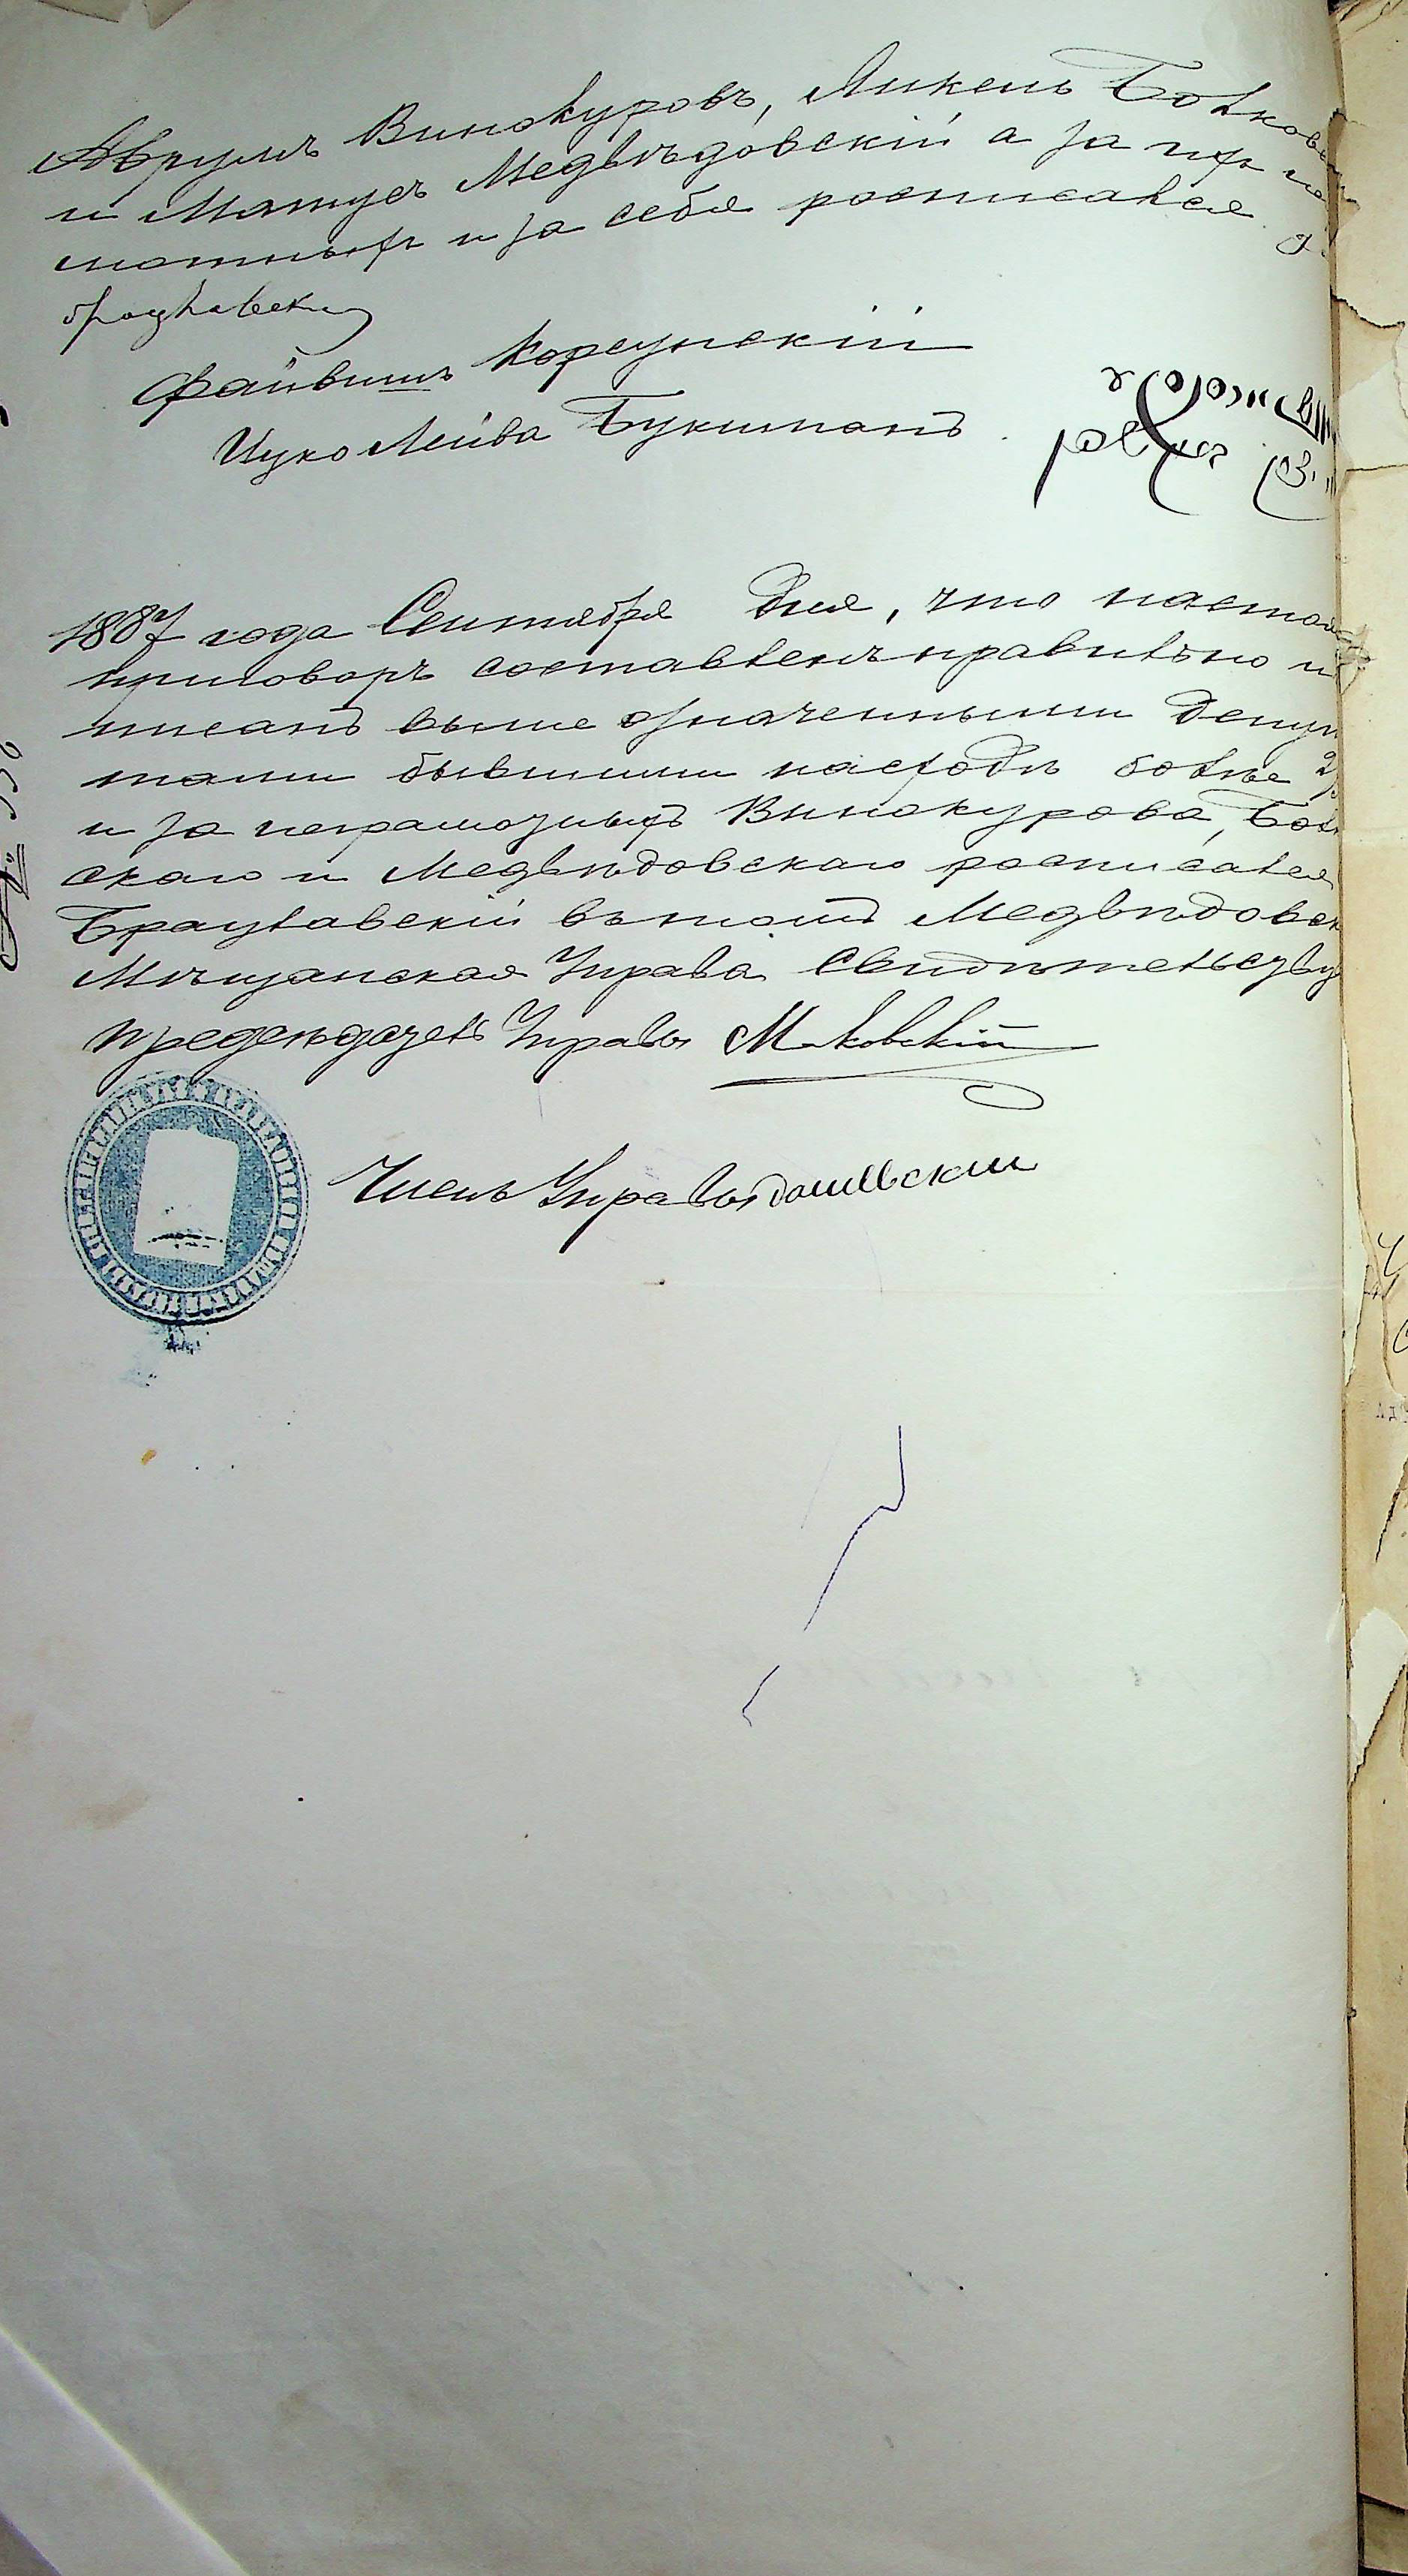 Аврумъ Винокуровъ, Янкель Болковс
и Мотусъ Медвѣдовскій а за ихъ не
мотныхъ и за себя росписался
Браулавскій
Файвишъ Корсунскій
Ицко Лейба Букшпанъ
1887 года Сентября дня, что настоя
приговоръ составленъ правильно и
писанъ выше означенными депут
тами бывшими насходѣ болѣе 2/3
и за неграмозныхъ Винокурова, Бол
скаго и Медвѣдовскаго росписался
Браулавскій въ томъ Медвѣдовск
Мѣщанская Управа свидѣтельству
Предсѣдатель Управы Маковскій
Членъ Управы